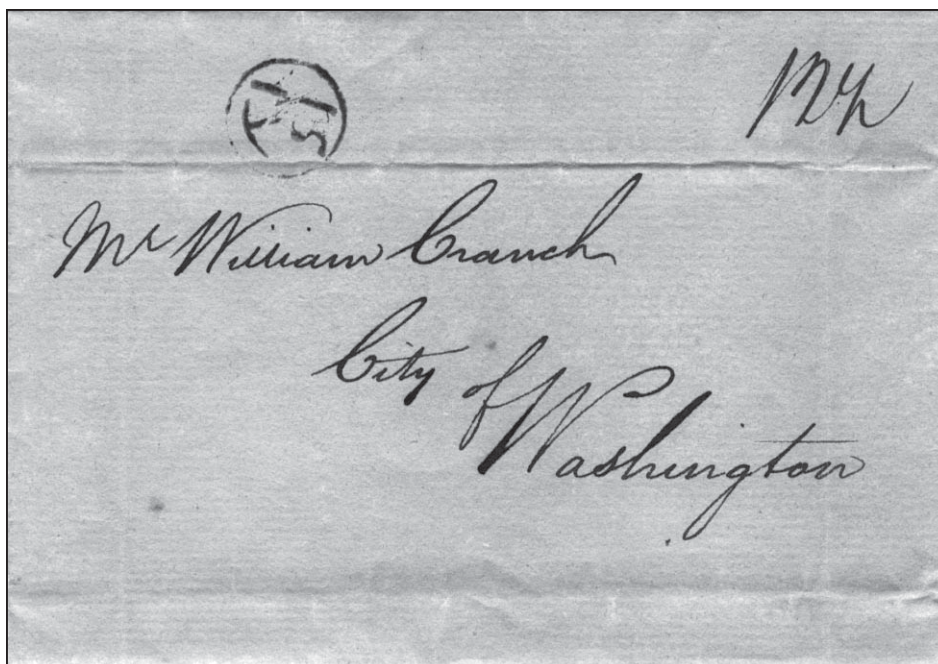 12½
Mr William Cranch
City of Washington